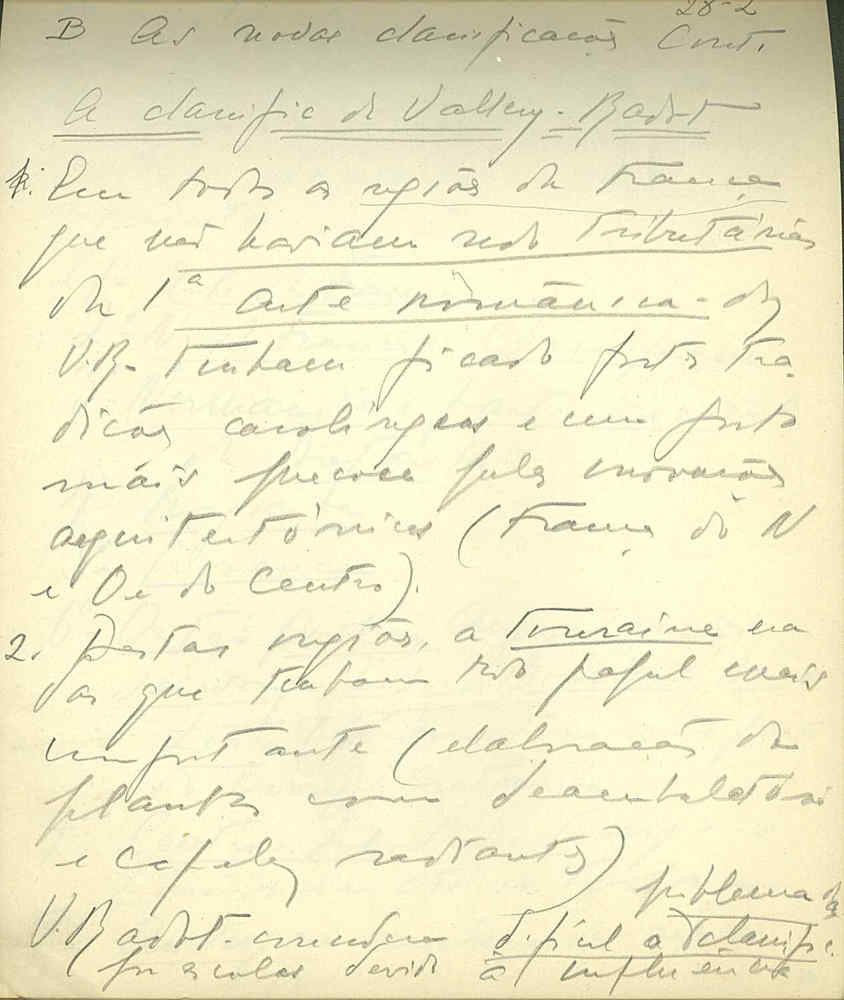 28-2
B As novas classificações Cont.
A classific de Vallery-Radot
1. Em todas as regiões da França
que não haviam sido tributárias
da 1ª arte românica - diz
V.R. tinham ficado fortes tra-
dições carolíngeas e um gosto
mais precoce pelas inovações
arquitectónicas (França do N
e O e do Centro).
2. Destas regiões, a Touraine era
das que tinham tido papel mais
importante (elaboração da
planta com deambulatório
e capelas radiantes)
problema da
V. Radot - considera difícil a classific.
por escolas devido à influência